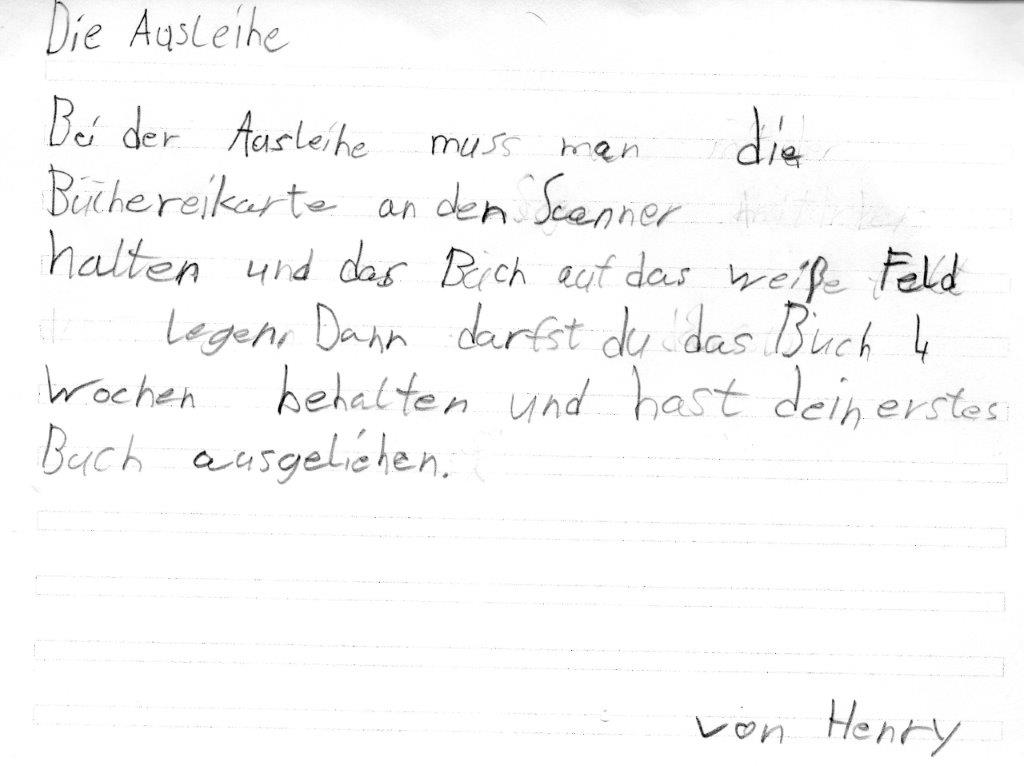 Die Ausleihe
Bei der Ausleihe muss man die
Büchereikarte an den Scanner
halten und das Buch auf das weiße Feld
legen. Dann darfst du das Buch 4
Wochen behalten und hast dein erstes
Buch ausgeliehen.
von Henry